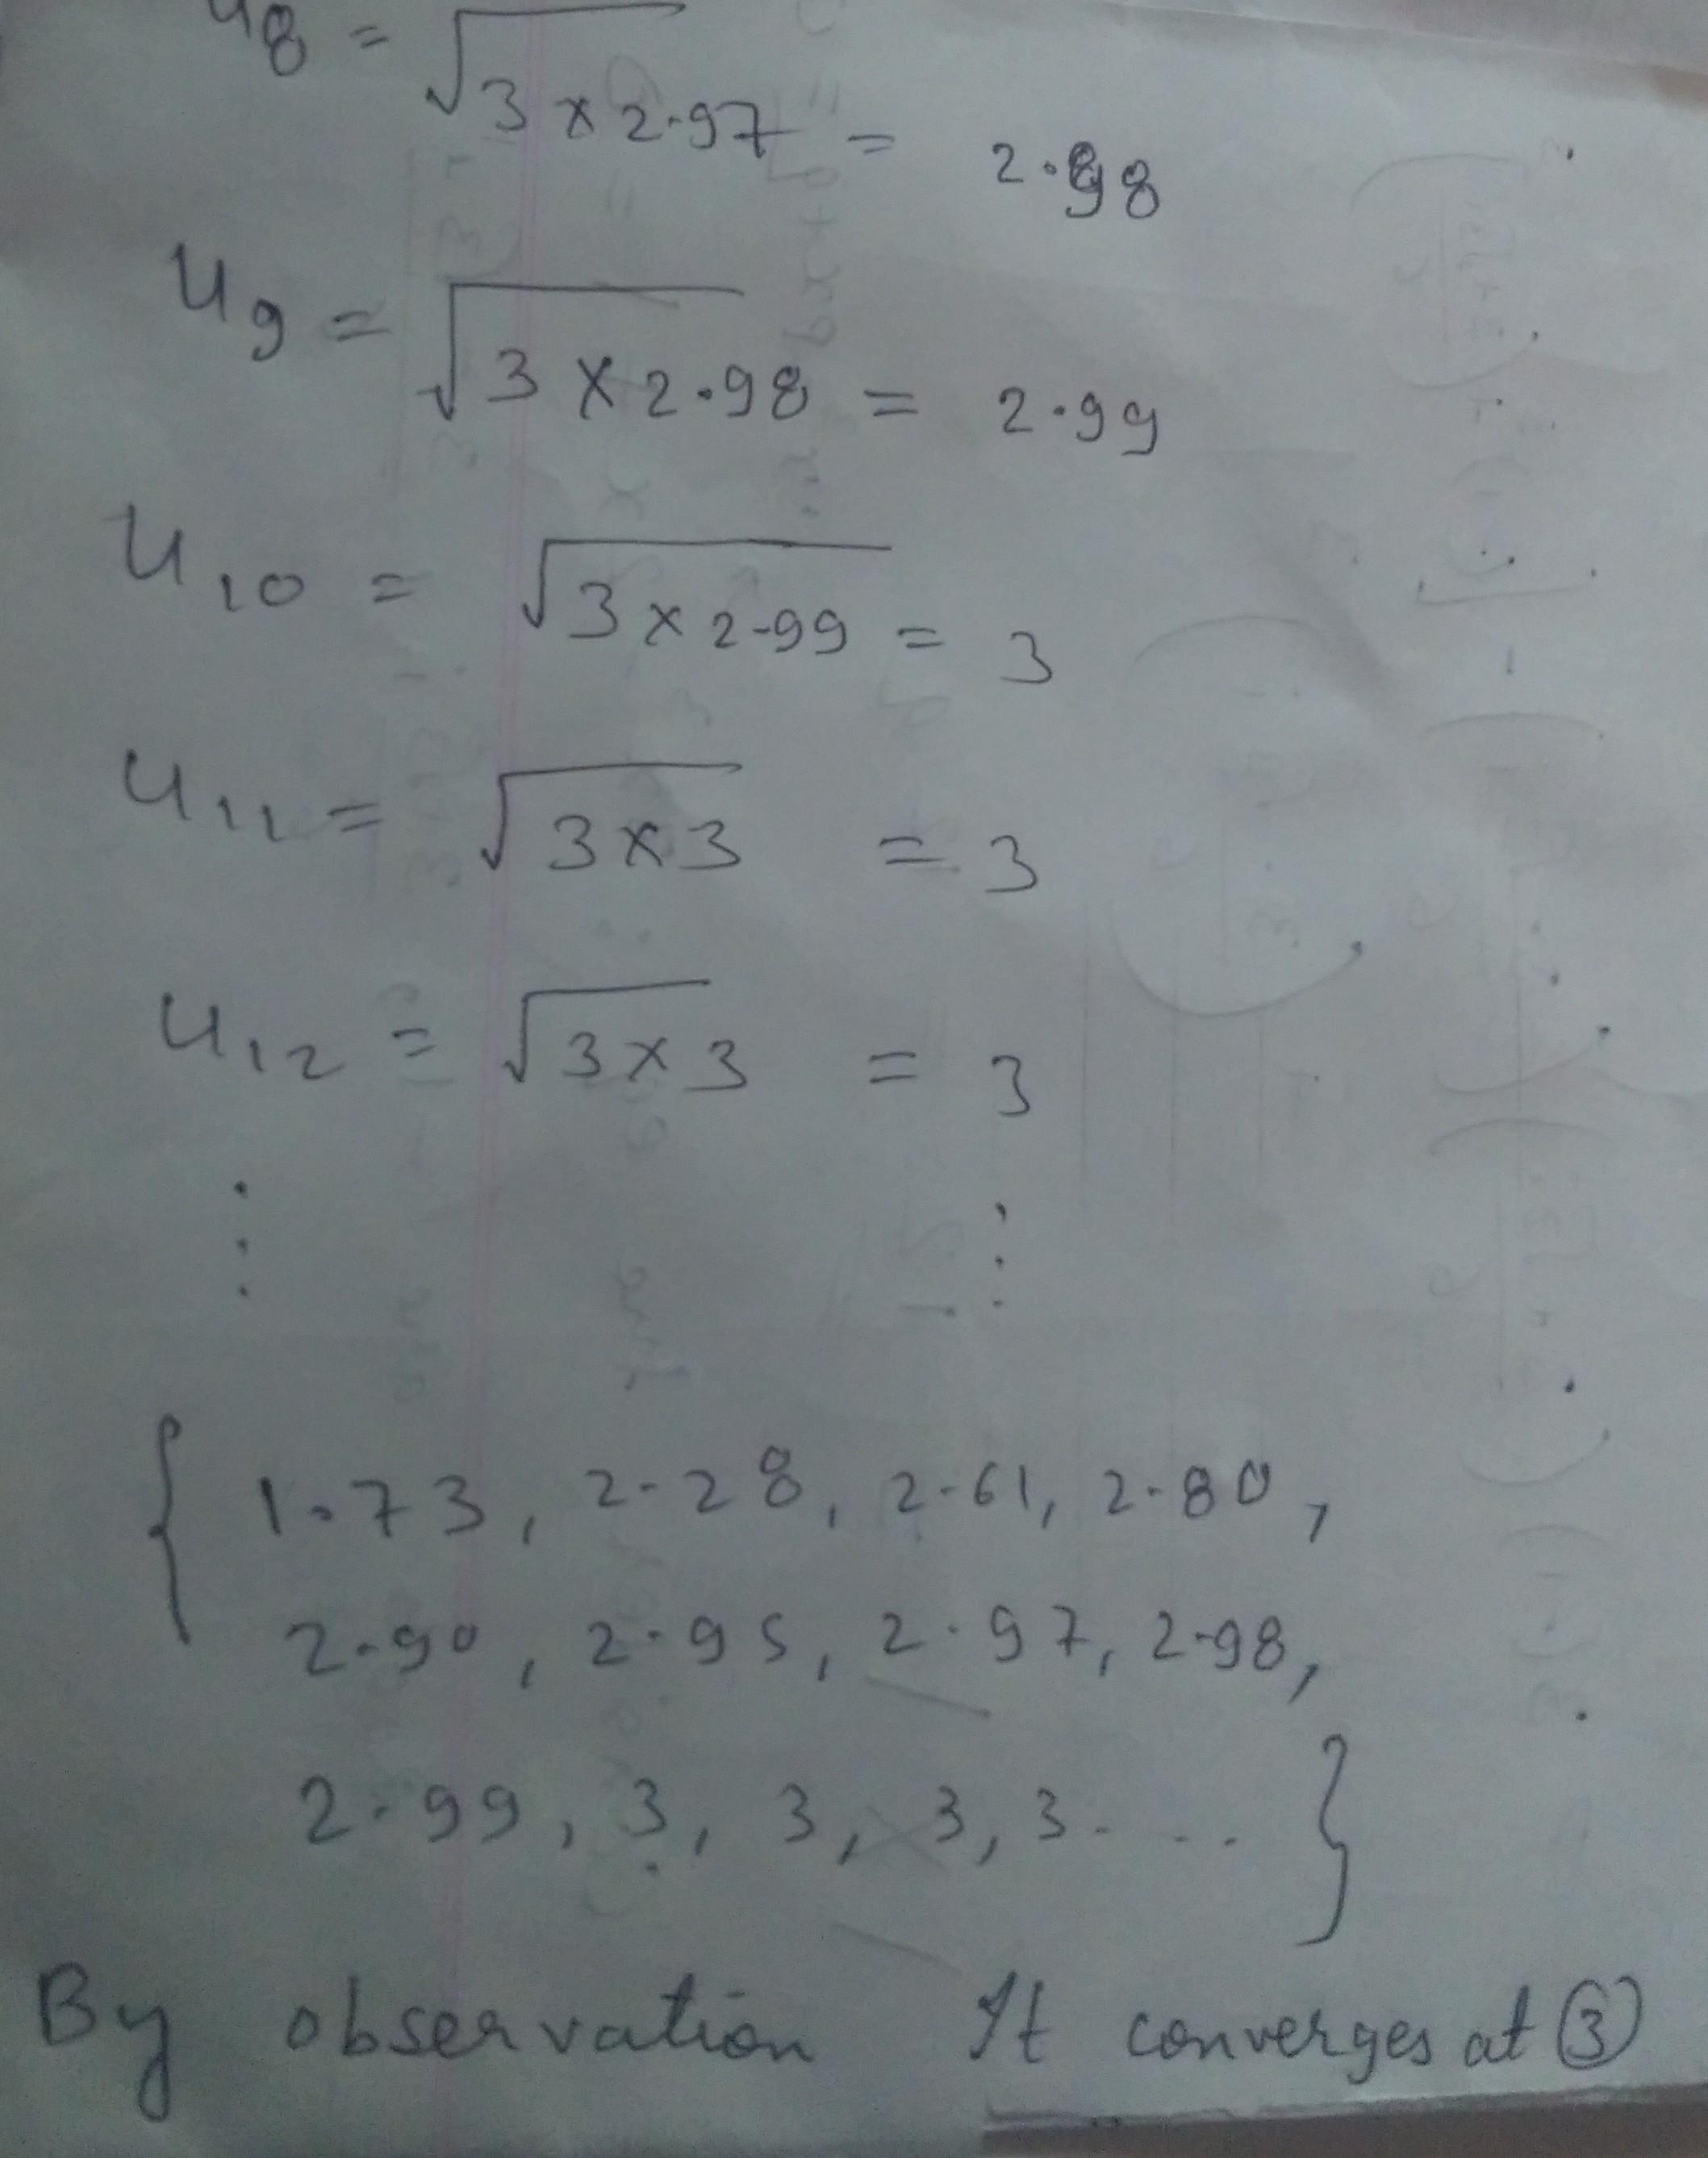 u8 = √3 × 2.97 = 2.98
u9 = √3 × 2.98 = 2.99
u10 = √3 × 2.99 = 3
u11 = √3 × 3 = 3
u12 = √3 × 3 = 3
⋮ ⋮
{ 1.73, 2.28, 2.61, 2.80,
2.90, 2.95, 2.97, 2.98,
2.99, 3, 3, 3, 3. . . . }
By observation It converges at ③